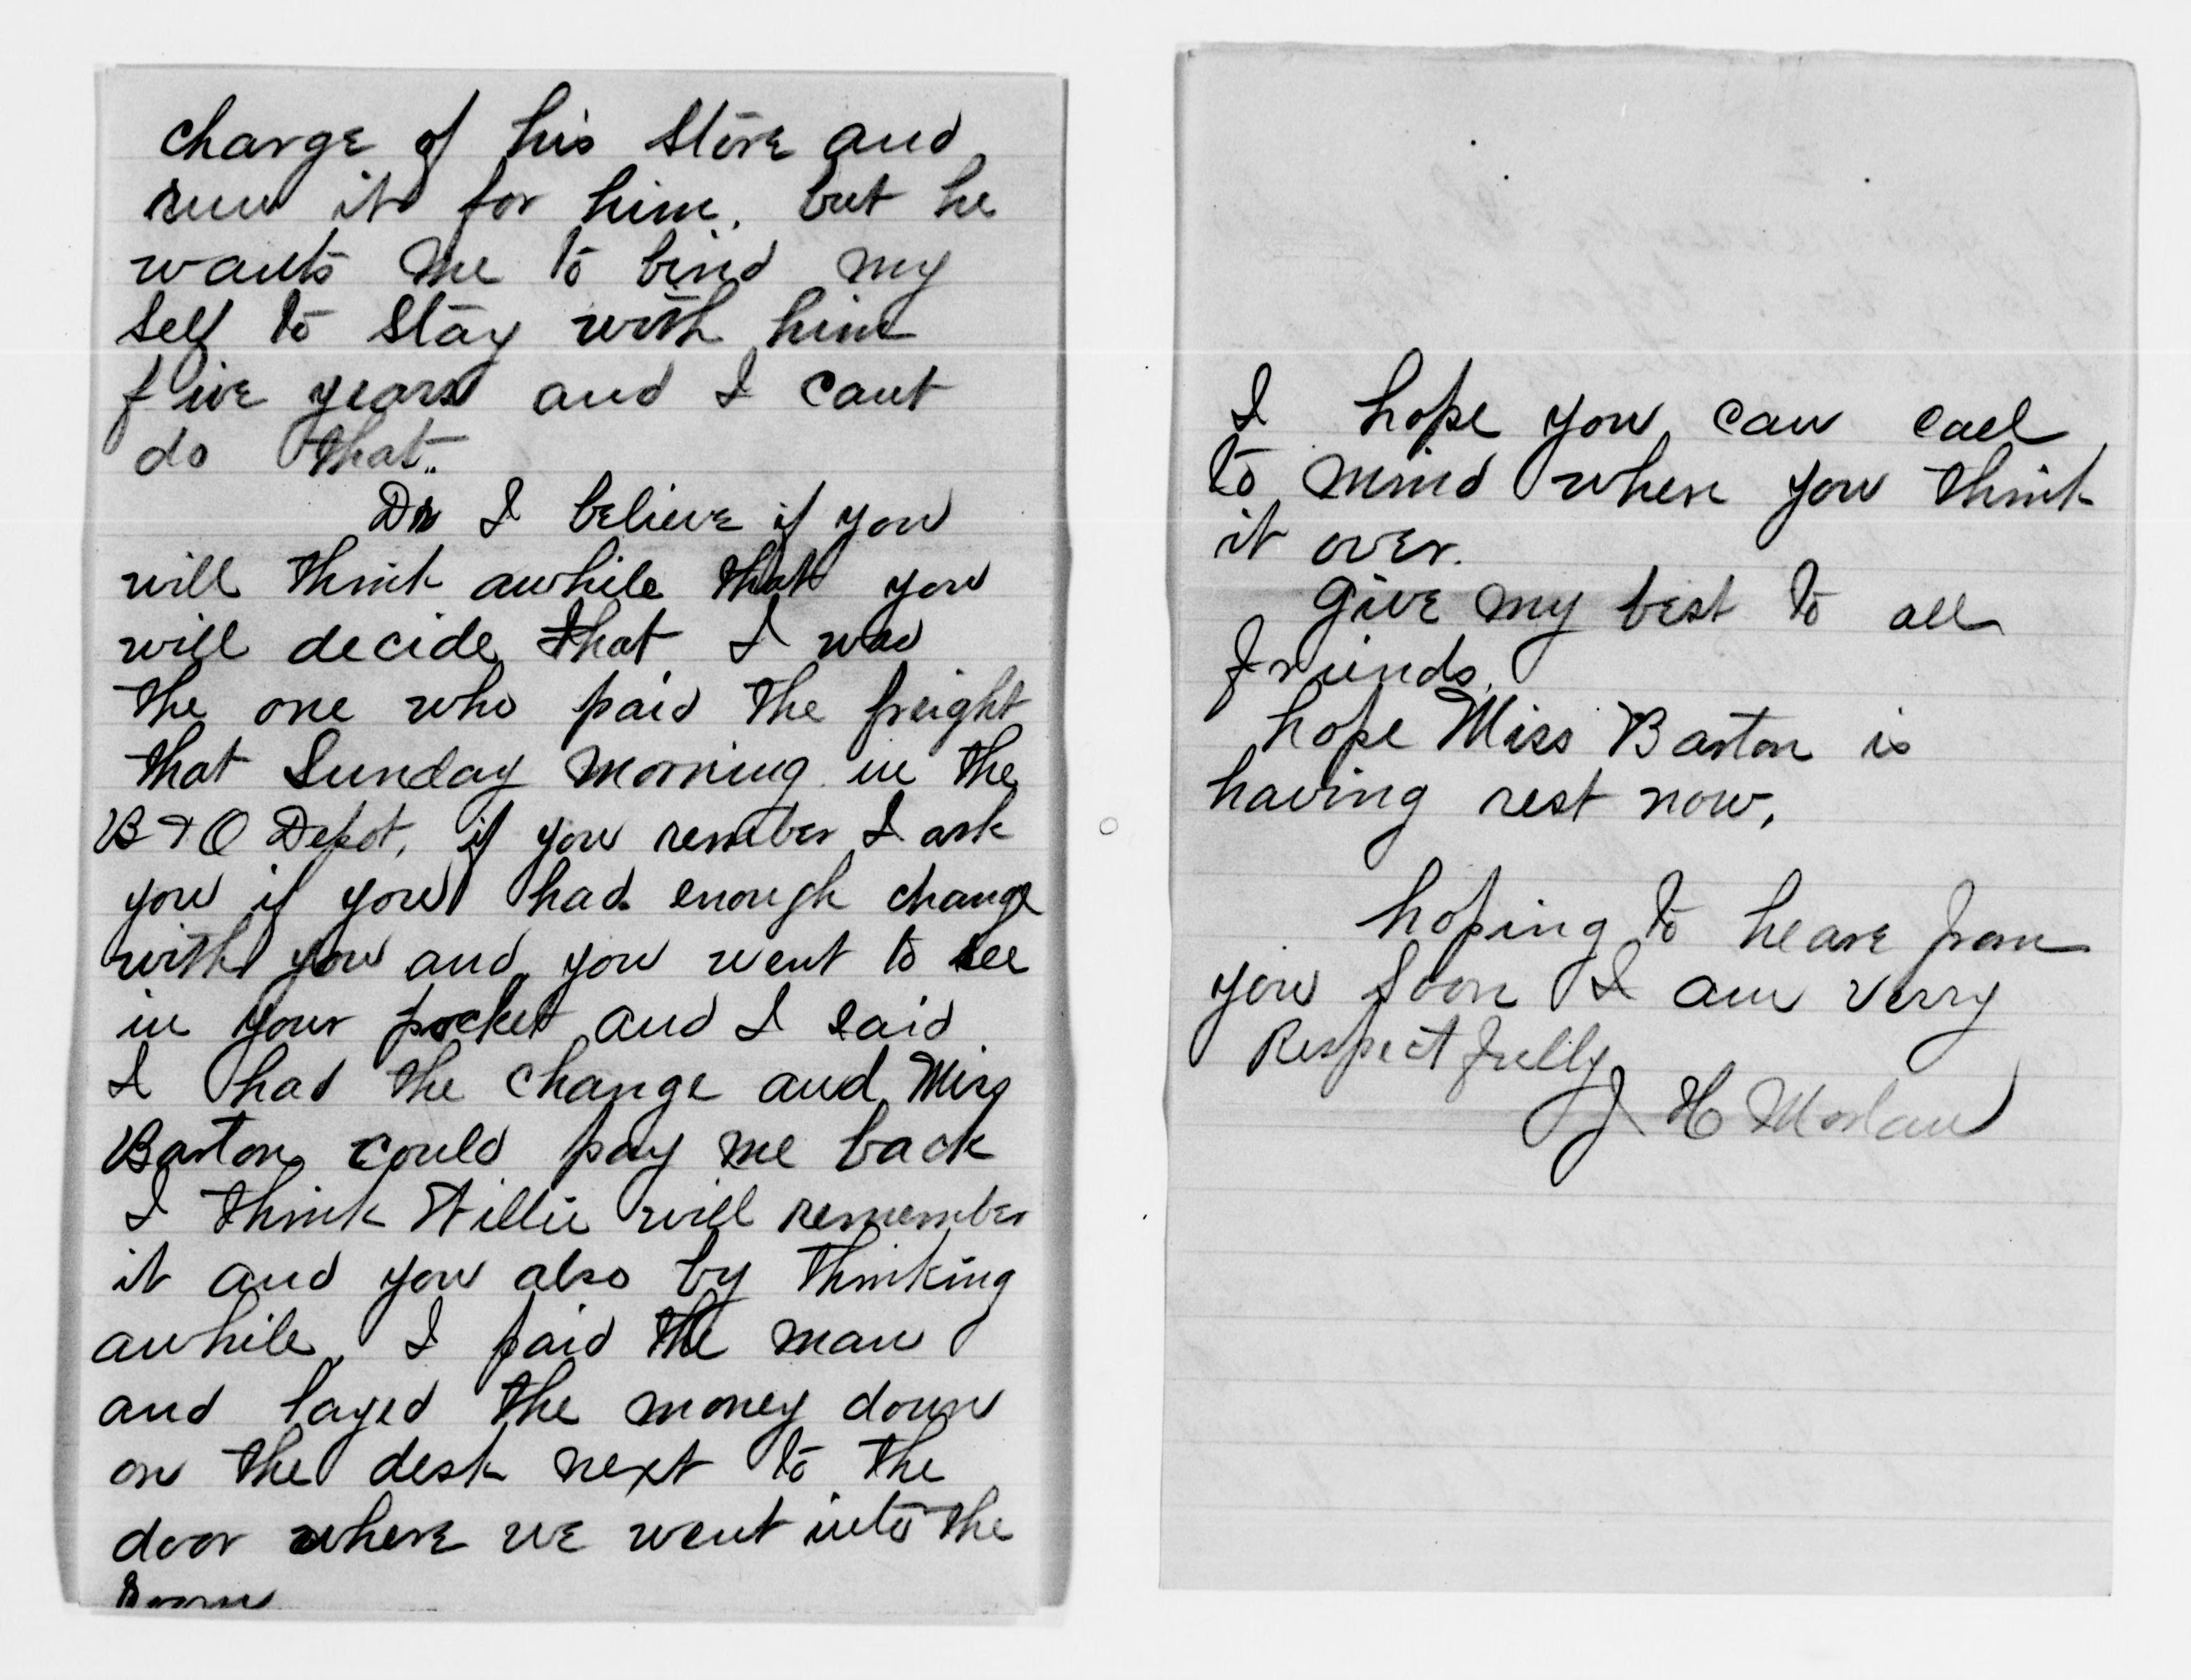 charge of his store and
run it for him. but he
wants me to bind my
self to stay with him
five years and I cant
do that..
Dr I believe if you
will think awhile that you
will decide that I was
the one who paid the freight
that Sunday morning in the
B & O Depot, if you rember I ask
you if you had enough change
with you and you went to see
in your pocket and I said
I had the change and Miss
Barton could pay me back
I think Willie will remember
it and you also by thinking
awhile, I paid the man
and layed the money down
on the desk next to the
door where we went into the
Room
I hope you can call
to mind when you think
it over.
Give my best to all
friends.
hope Miss Barton is
having rest now,
hoping to heare from
you soon I am verry
Respectfully
J H Morlan